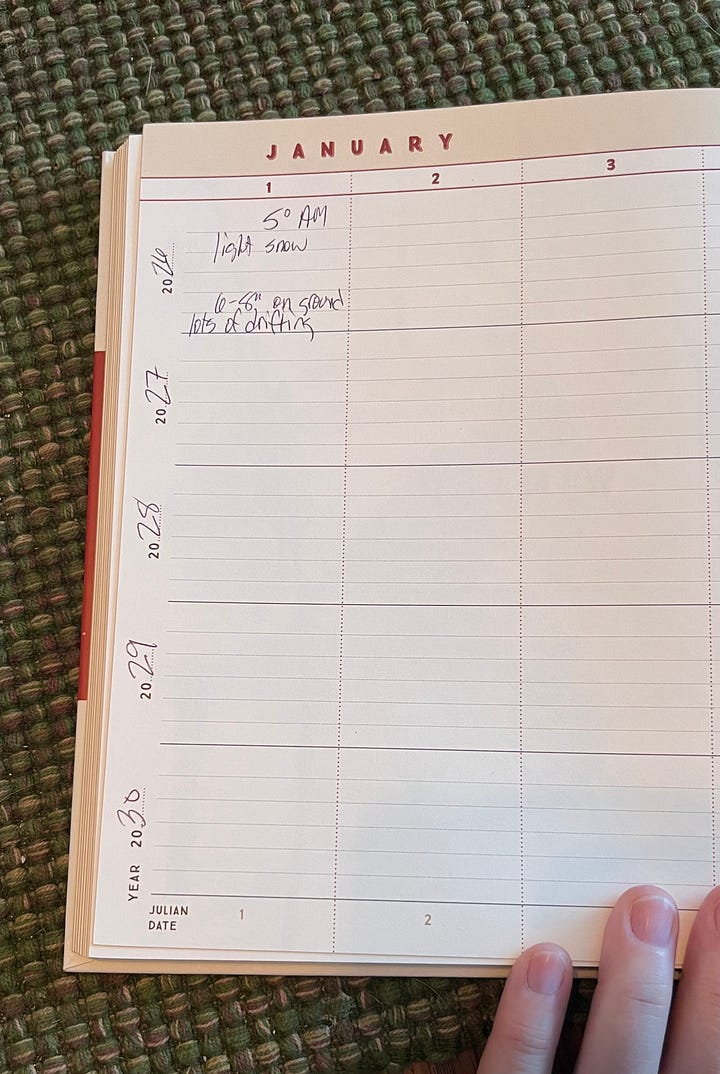 JANUARY
1 2 3
5° AM
light snow
6-8" on ground
lots of drifting
2026
2027
2028
2029
YEAR 2030
JULIAN DATE 1 2